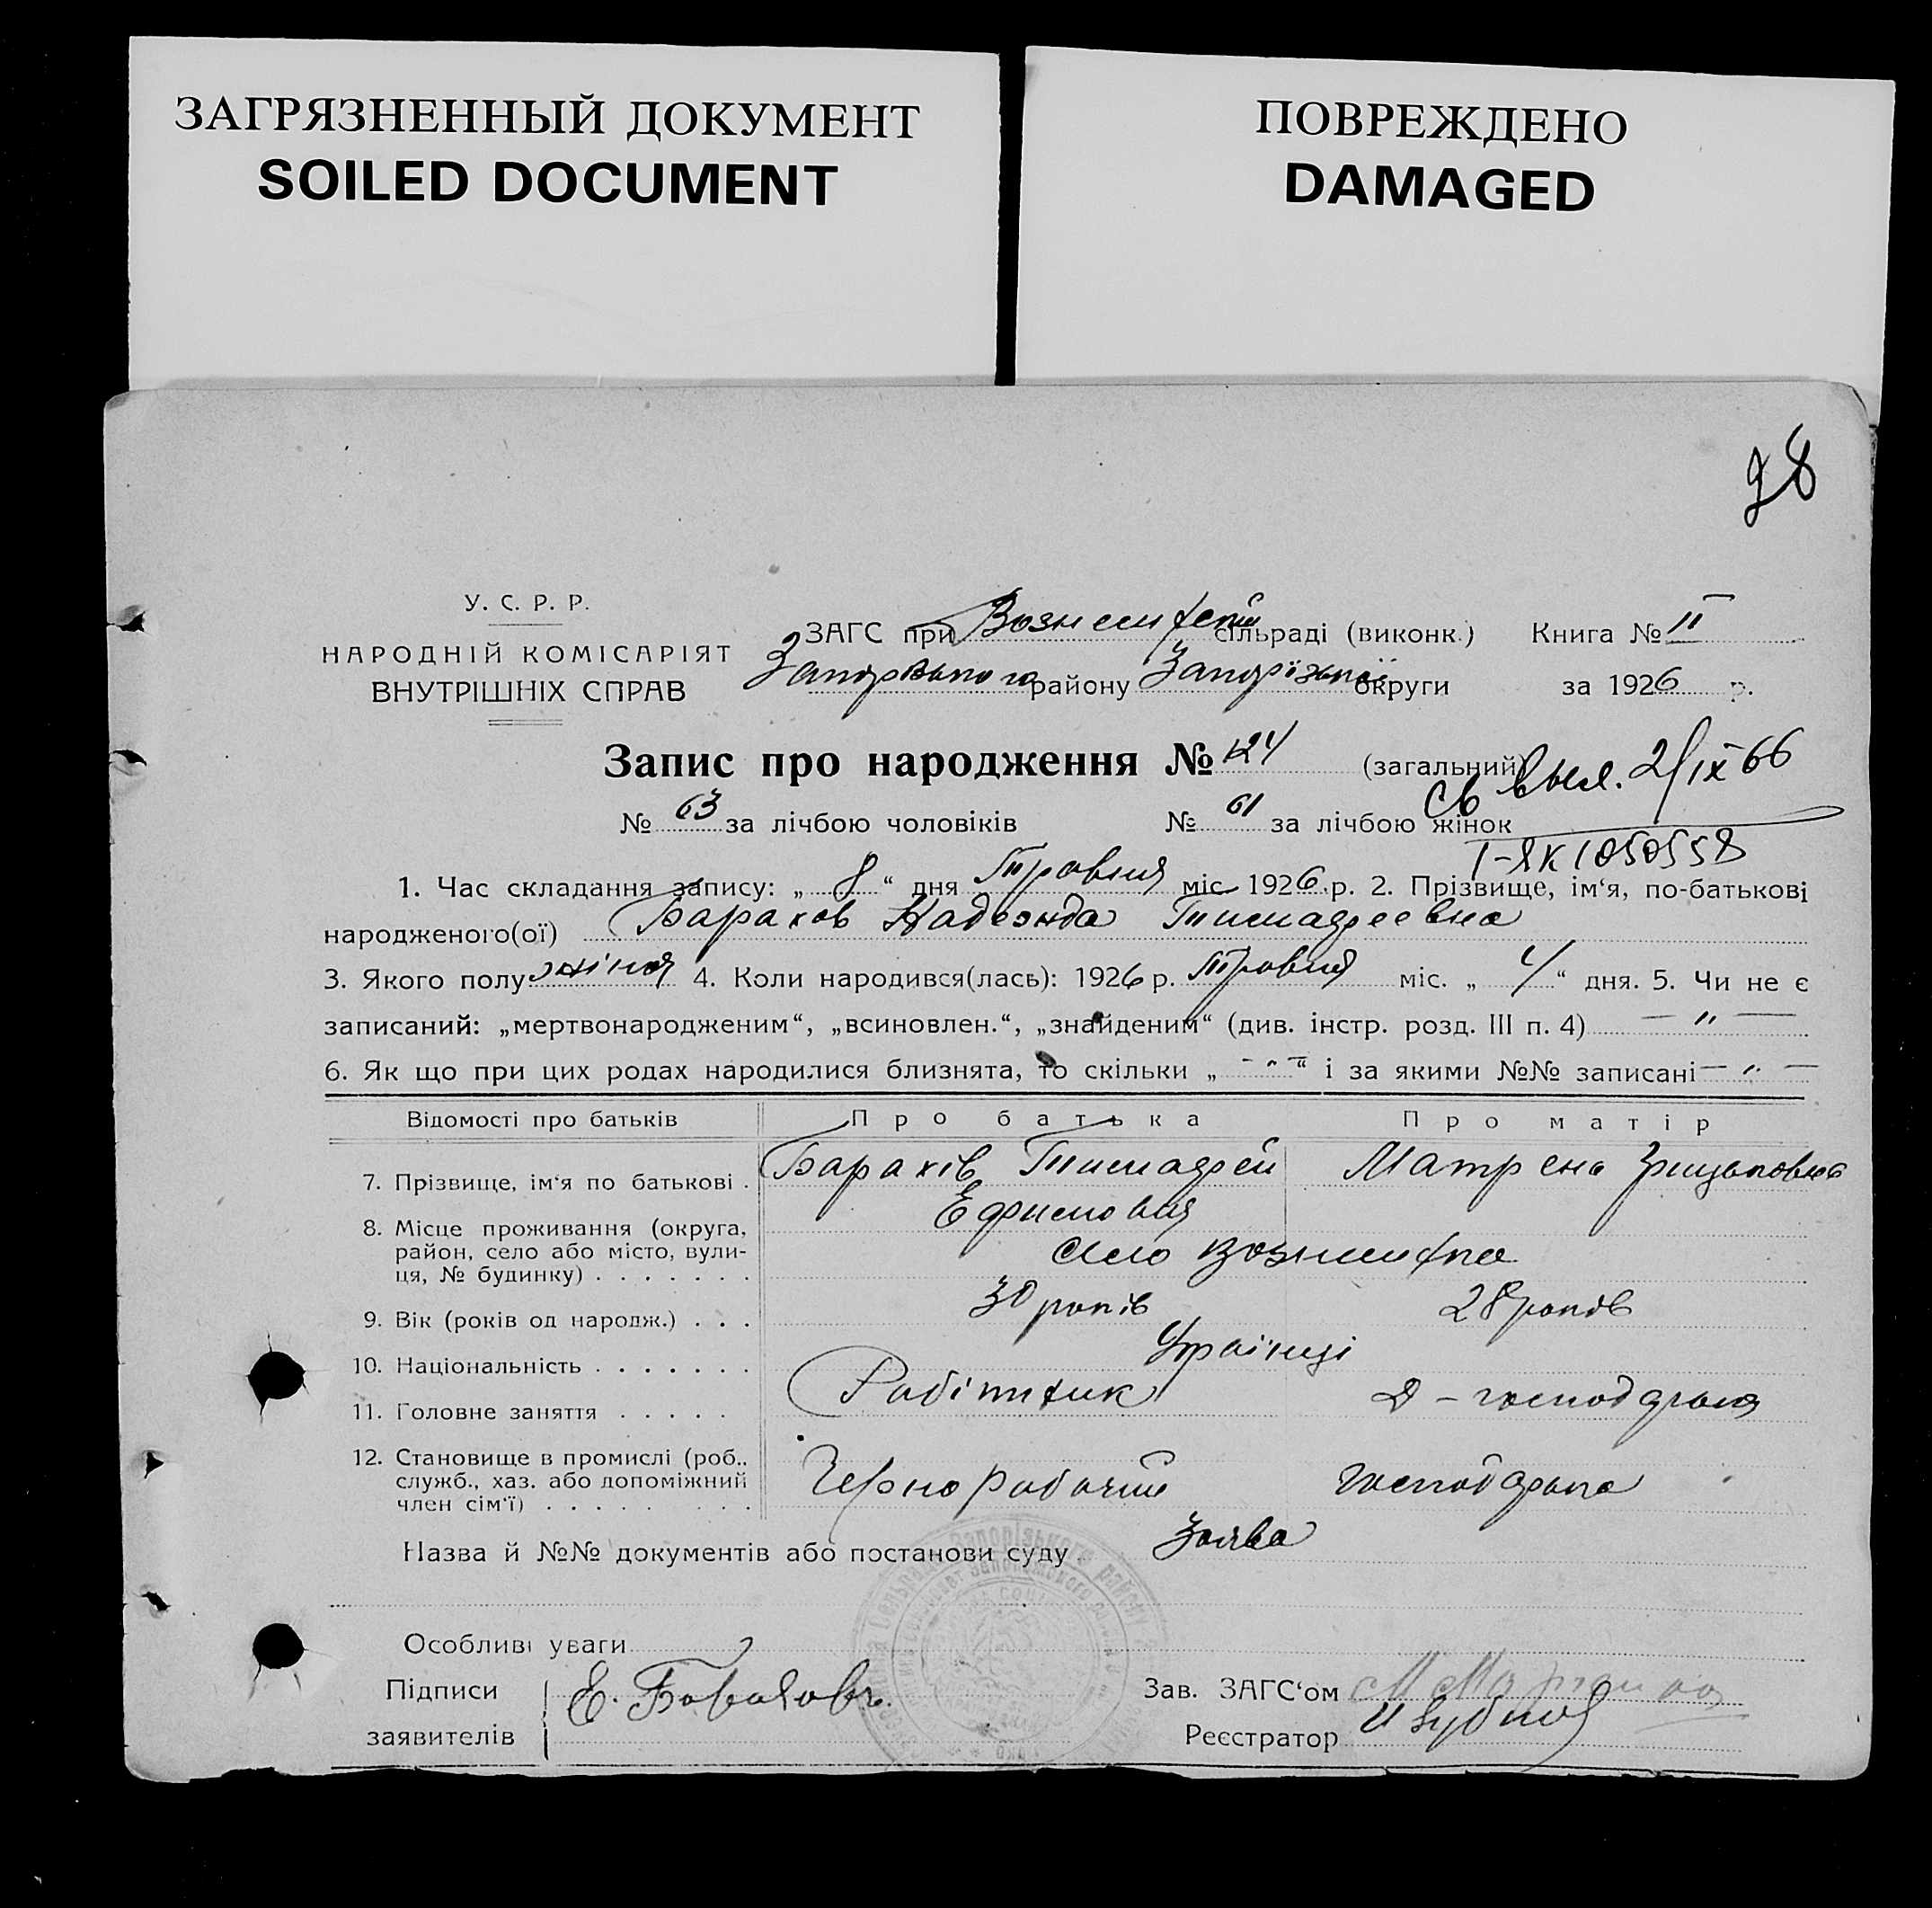 ЗАГРЯЗНЕННЫЙ ДОКУМЕНТ
SOILED DOCUMENT
ПОВРЕЖДЕНО
DAMAGED
98
У. С. Р. Р.
НАРОДНІЙ КОМІСАРІЯТ
ВНУТРІШНІХ СПРАВ
ЗАГС при сільраді (виконк.) Книга № II
району Запорізької округи за 1926 р.
Запис про народження № 124 (загальний)
св выд. 2/IX 66
№ 63 за лічбою чоловіків № 61 за лічбою жінок
I-ЯК 1050558
1. Час складання запису: „ 8 “ дня Травня міс 1926 р. 2. Прізвище, ім‘я, по-батькові
народженого(ої) Барахов Надежда
3. Якого полу 4. Коли народився(лась): 1926 р. Травня міс. „ 4 “ дня. 5. Чи не є
записаний: „мертвонародженим“, „всиновлен.“, „знайденим“ (див. інстр. розд. III п. 4) — " —
6. Як що при цих родах народилися близнята, то скільки „ - " - “ і за якими №№ записані — " —
Відомості про батьків Про батька Про матір
7. Прізвище, ім‘я по батькові . Барахів Матрена
Ефимович
8. Місце проживання (округа,
район, село або місто, вули-
ця, № будинку) . . . . . . . село
9. Вік (років од народж.) . . . 30 років 28 років
10. Національність . . . . . . . Українці
11. Головне заняття . . . . . Робітник Д - господарка
12. Становище в промислі (роб..
служб., хаз. або допоміжний
член сім‘ї) . . . . . . . . . Чернорабочий господарка
Назва й №№ документів або постанови суду . Заява
Особливі уваги
Підписи
заявителів
Е.
Зав. ЗАГС‘ом
Реєстратор